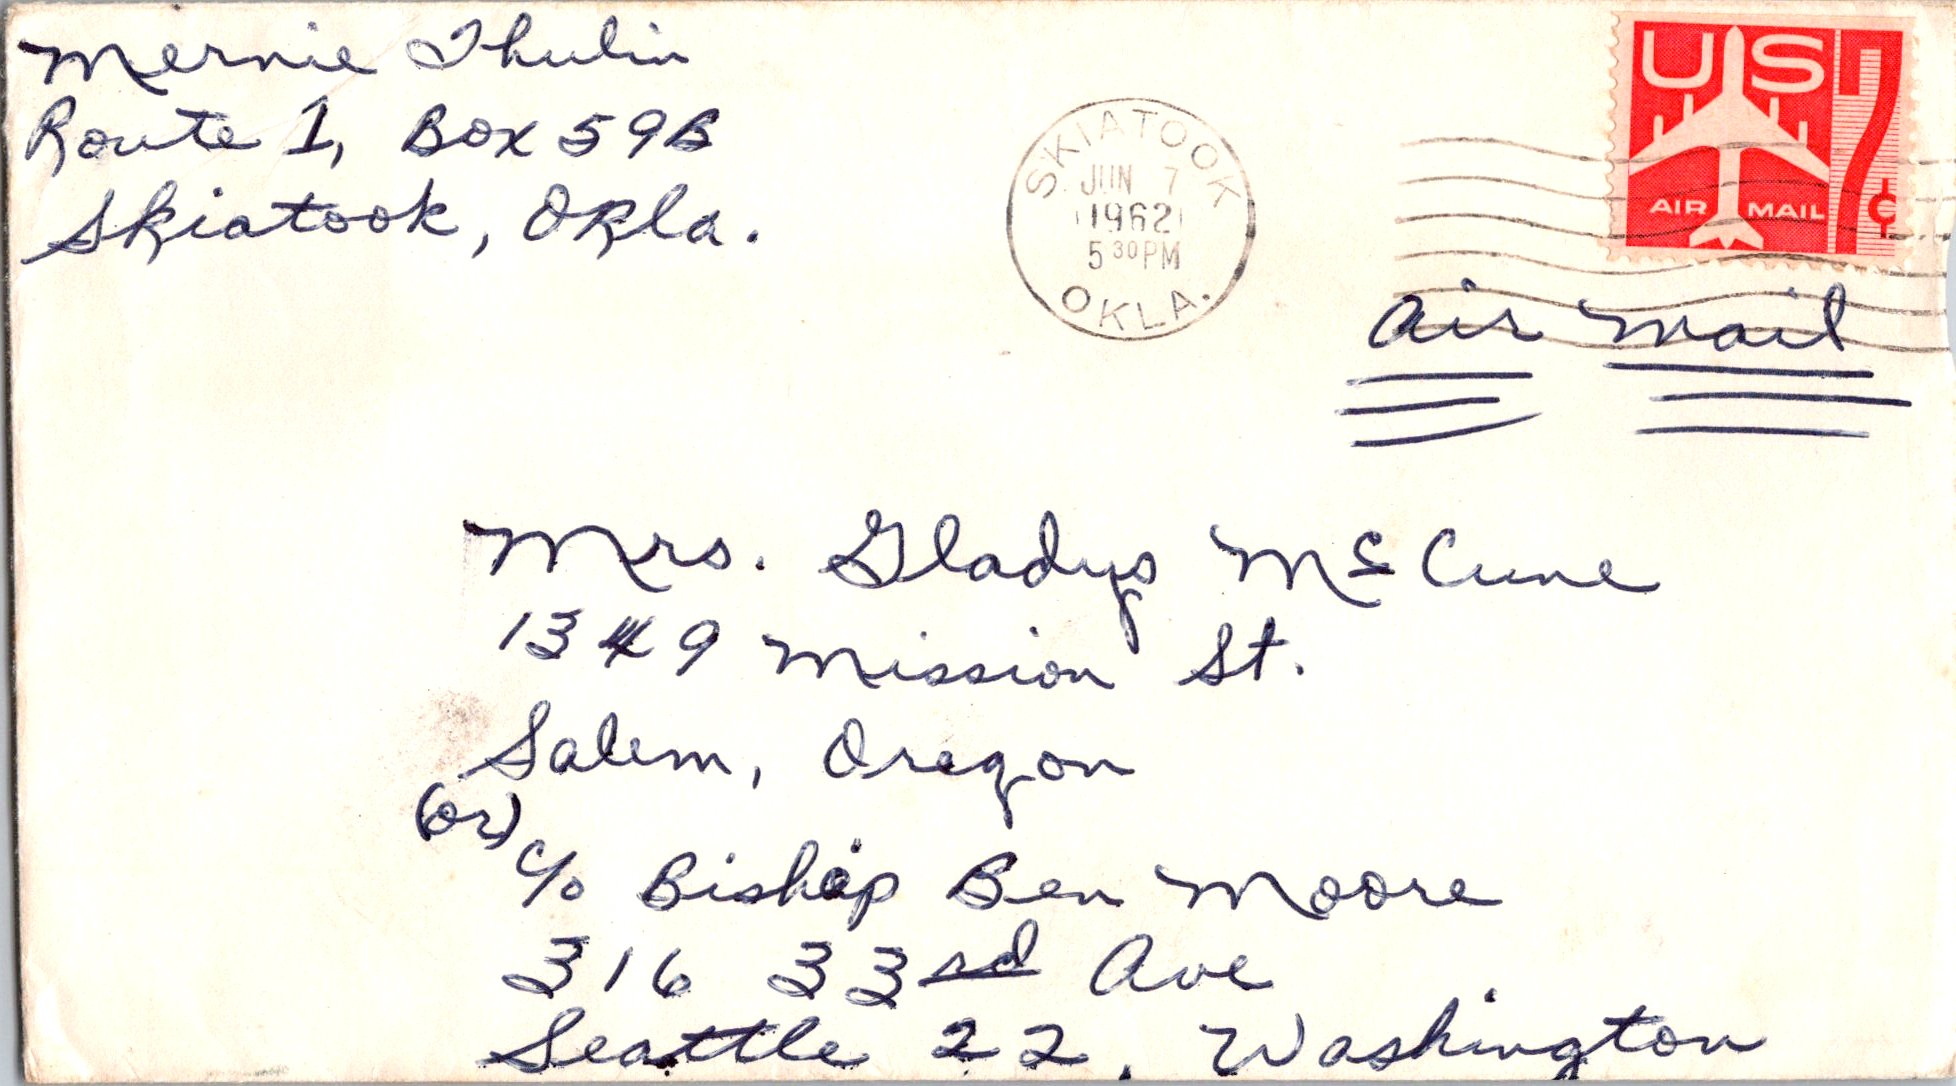 Mernie Thulin
Route 1, Box 59B
Skiatook, Okla.
SKIATOOK
JUN 7
1962
5 30 PM
OKLA.
US 7¢
AIR MAIL
Air Mail
Mrs. Gladys McCune
1349 Mission St.
Salem, Oregon
(or)
c/o Bishop Ben Moore
316 33rd Ave
Seattle 22, Washington